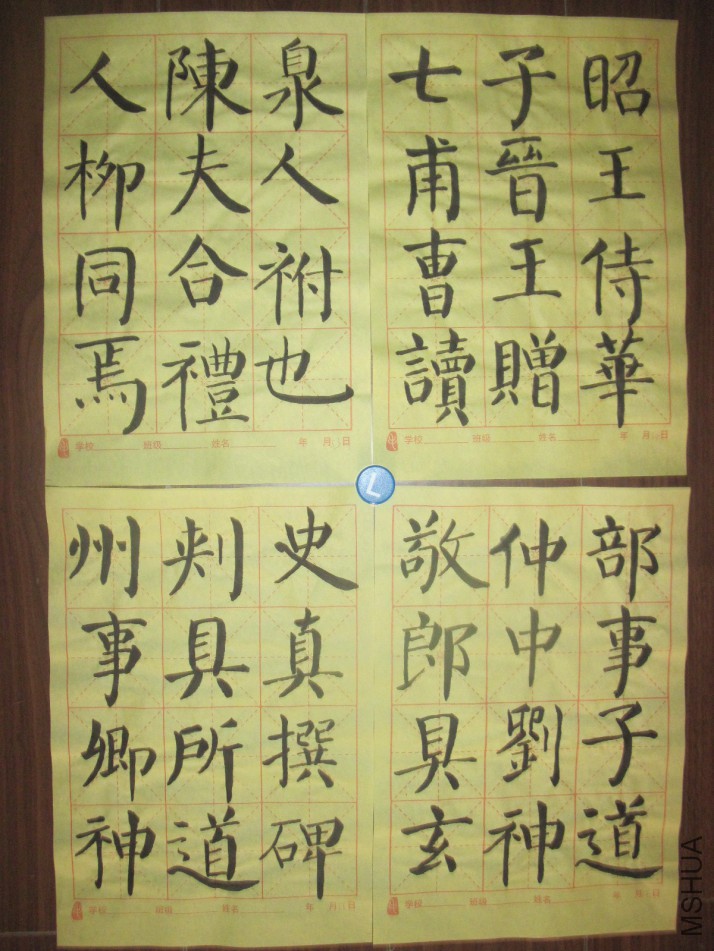 昭王侍華
子晉王贈
七甫曹讀
学校 班级 姓名 年 月 日
泉人祔也
陳夫合禮
人柳同焉
学校 班级 姓名 年 月 日
部事子道
仲中劉神
敬郎具玄
学校 班级 姓名 年 月 日
史真撰碑
刺具所道
州事卿神
学校 班级 姓名 年 月 日
L
MSHUA